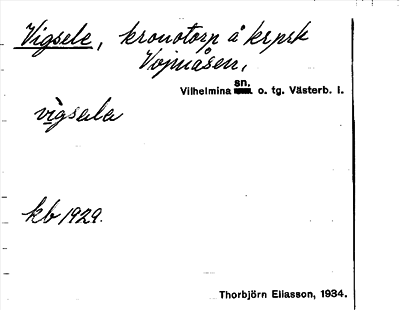 Vigsele, kronotorp å krprk
Vojmåsen,
sn.
Vilhelmina o. tg. Västerb. l.
vìgsala
kb 1929.
Thorbjörn Eliasson, 1934.